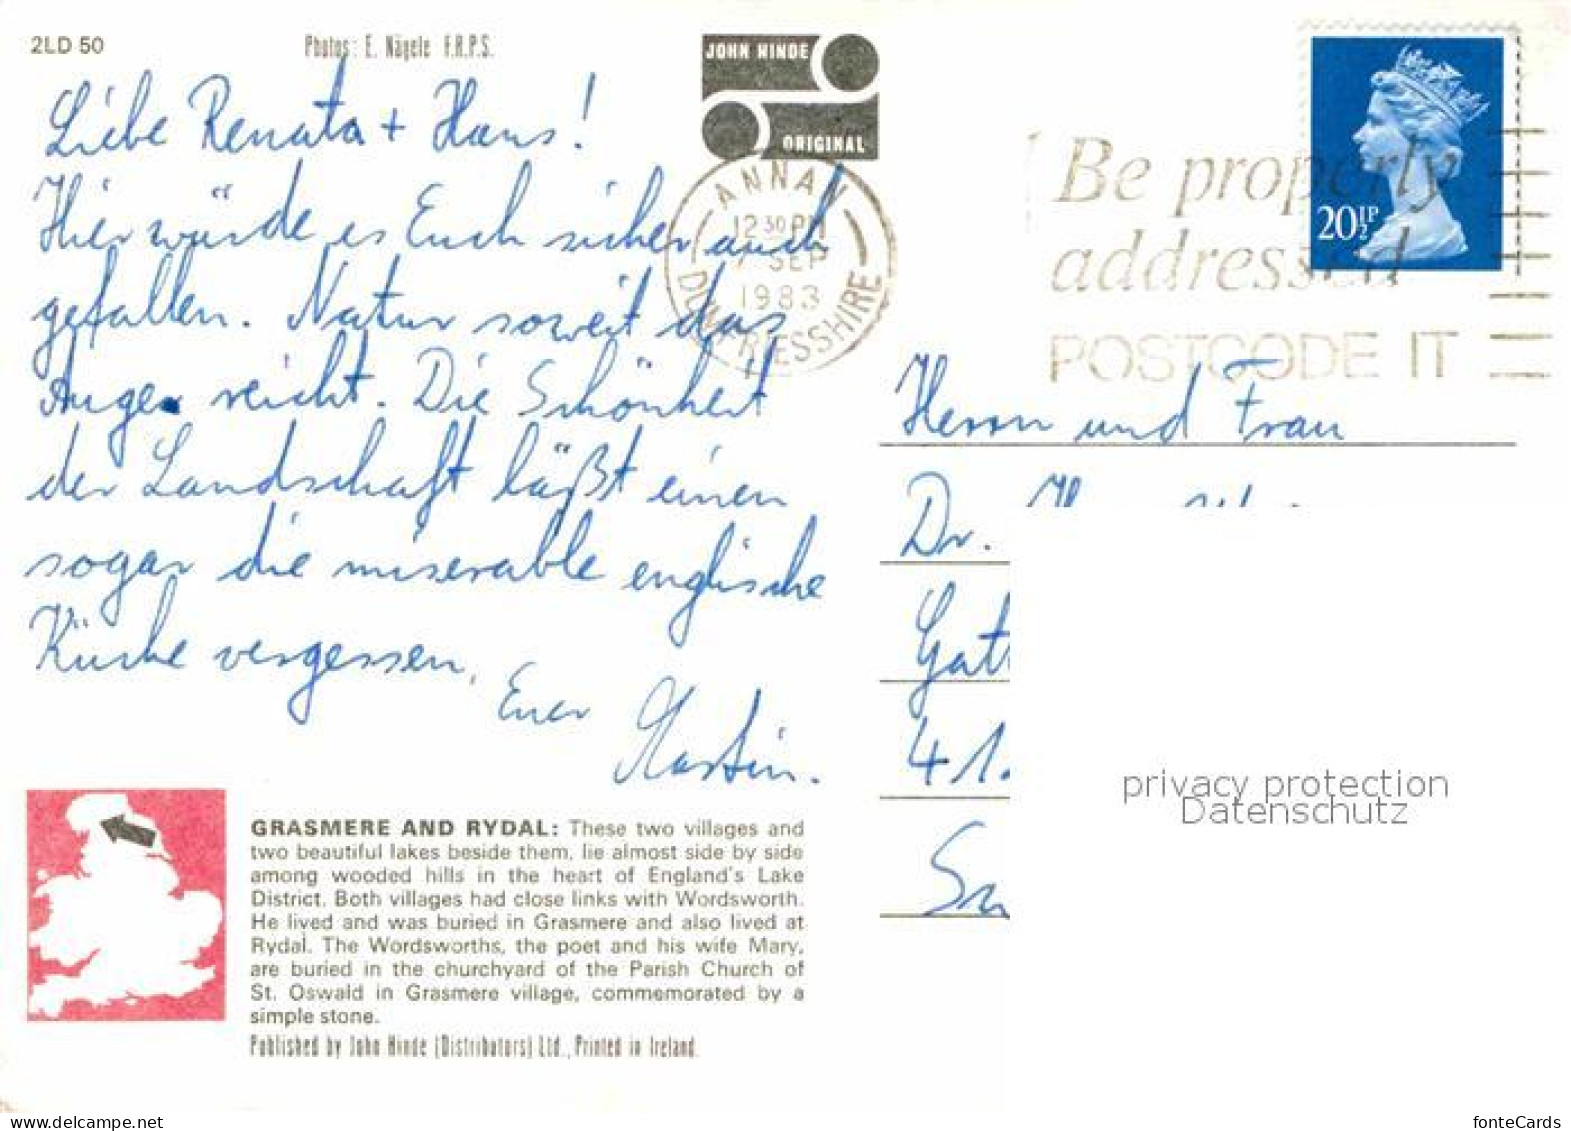 2LD 50
Photos: E. Nägele F.R.P.S.
JOHN HINDE
ORIGINAL
Liebe Renata + Hans!
Hier würde es Euch sicher auch
gefallen. Natur soweit das
Auge reicht. Die Schönheit
der Landschaft läßt einen
sogar die miserable englische
Küche vergessen.
Euer
Martin.
ANNAN
12 30 PM
7 SEP
1983
DUMFRIESSHIRE
Be properly
addressed
POSTCODE IT
20½P
Herrn und Frau
Dr.
Gatt
41.
GRASMERE AND RYDAL: These two villages and
two beautiful lakes beside them, lie almost side by side
among wooded hills in the heart of England's Lake
District. Both villages had close links with Wordsworth.
He lived and was buried in Grasmere and also lived at
Rydal. The Wordsworths, the poet and his wife Mary,
are buried in the churchyard of the Parish Church of
St. Oswald in Grasmere village, commemorated by a
simple stone.
Published by John Hinde (Distributors) Ltd., Printed in Ireland.
privacy protection
Datenschutz
www.delcampe.net
fonteCards